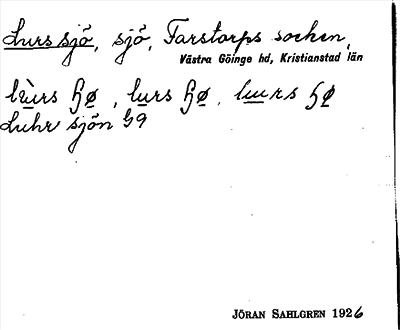 Lurs sjö, sjö, Farstorps socken,
Västra Göinge hd, Kristianstad län
lùrs ɧø, lurs ɧø, luurs ɧø
Luhr sjön G9
JÖRAN SAHLGREN 1926